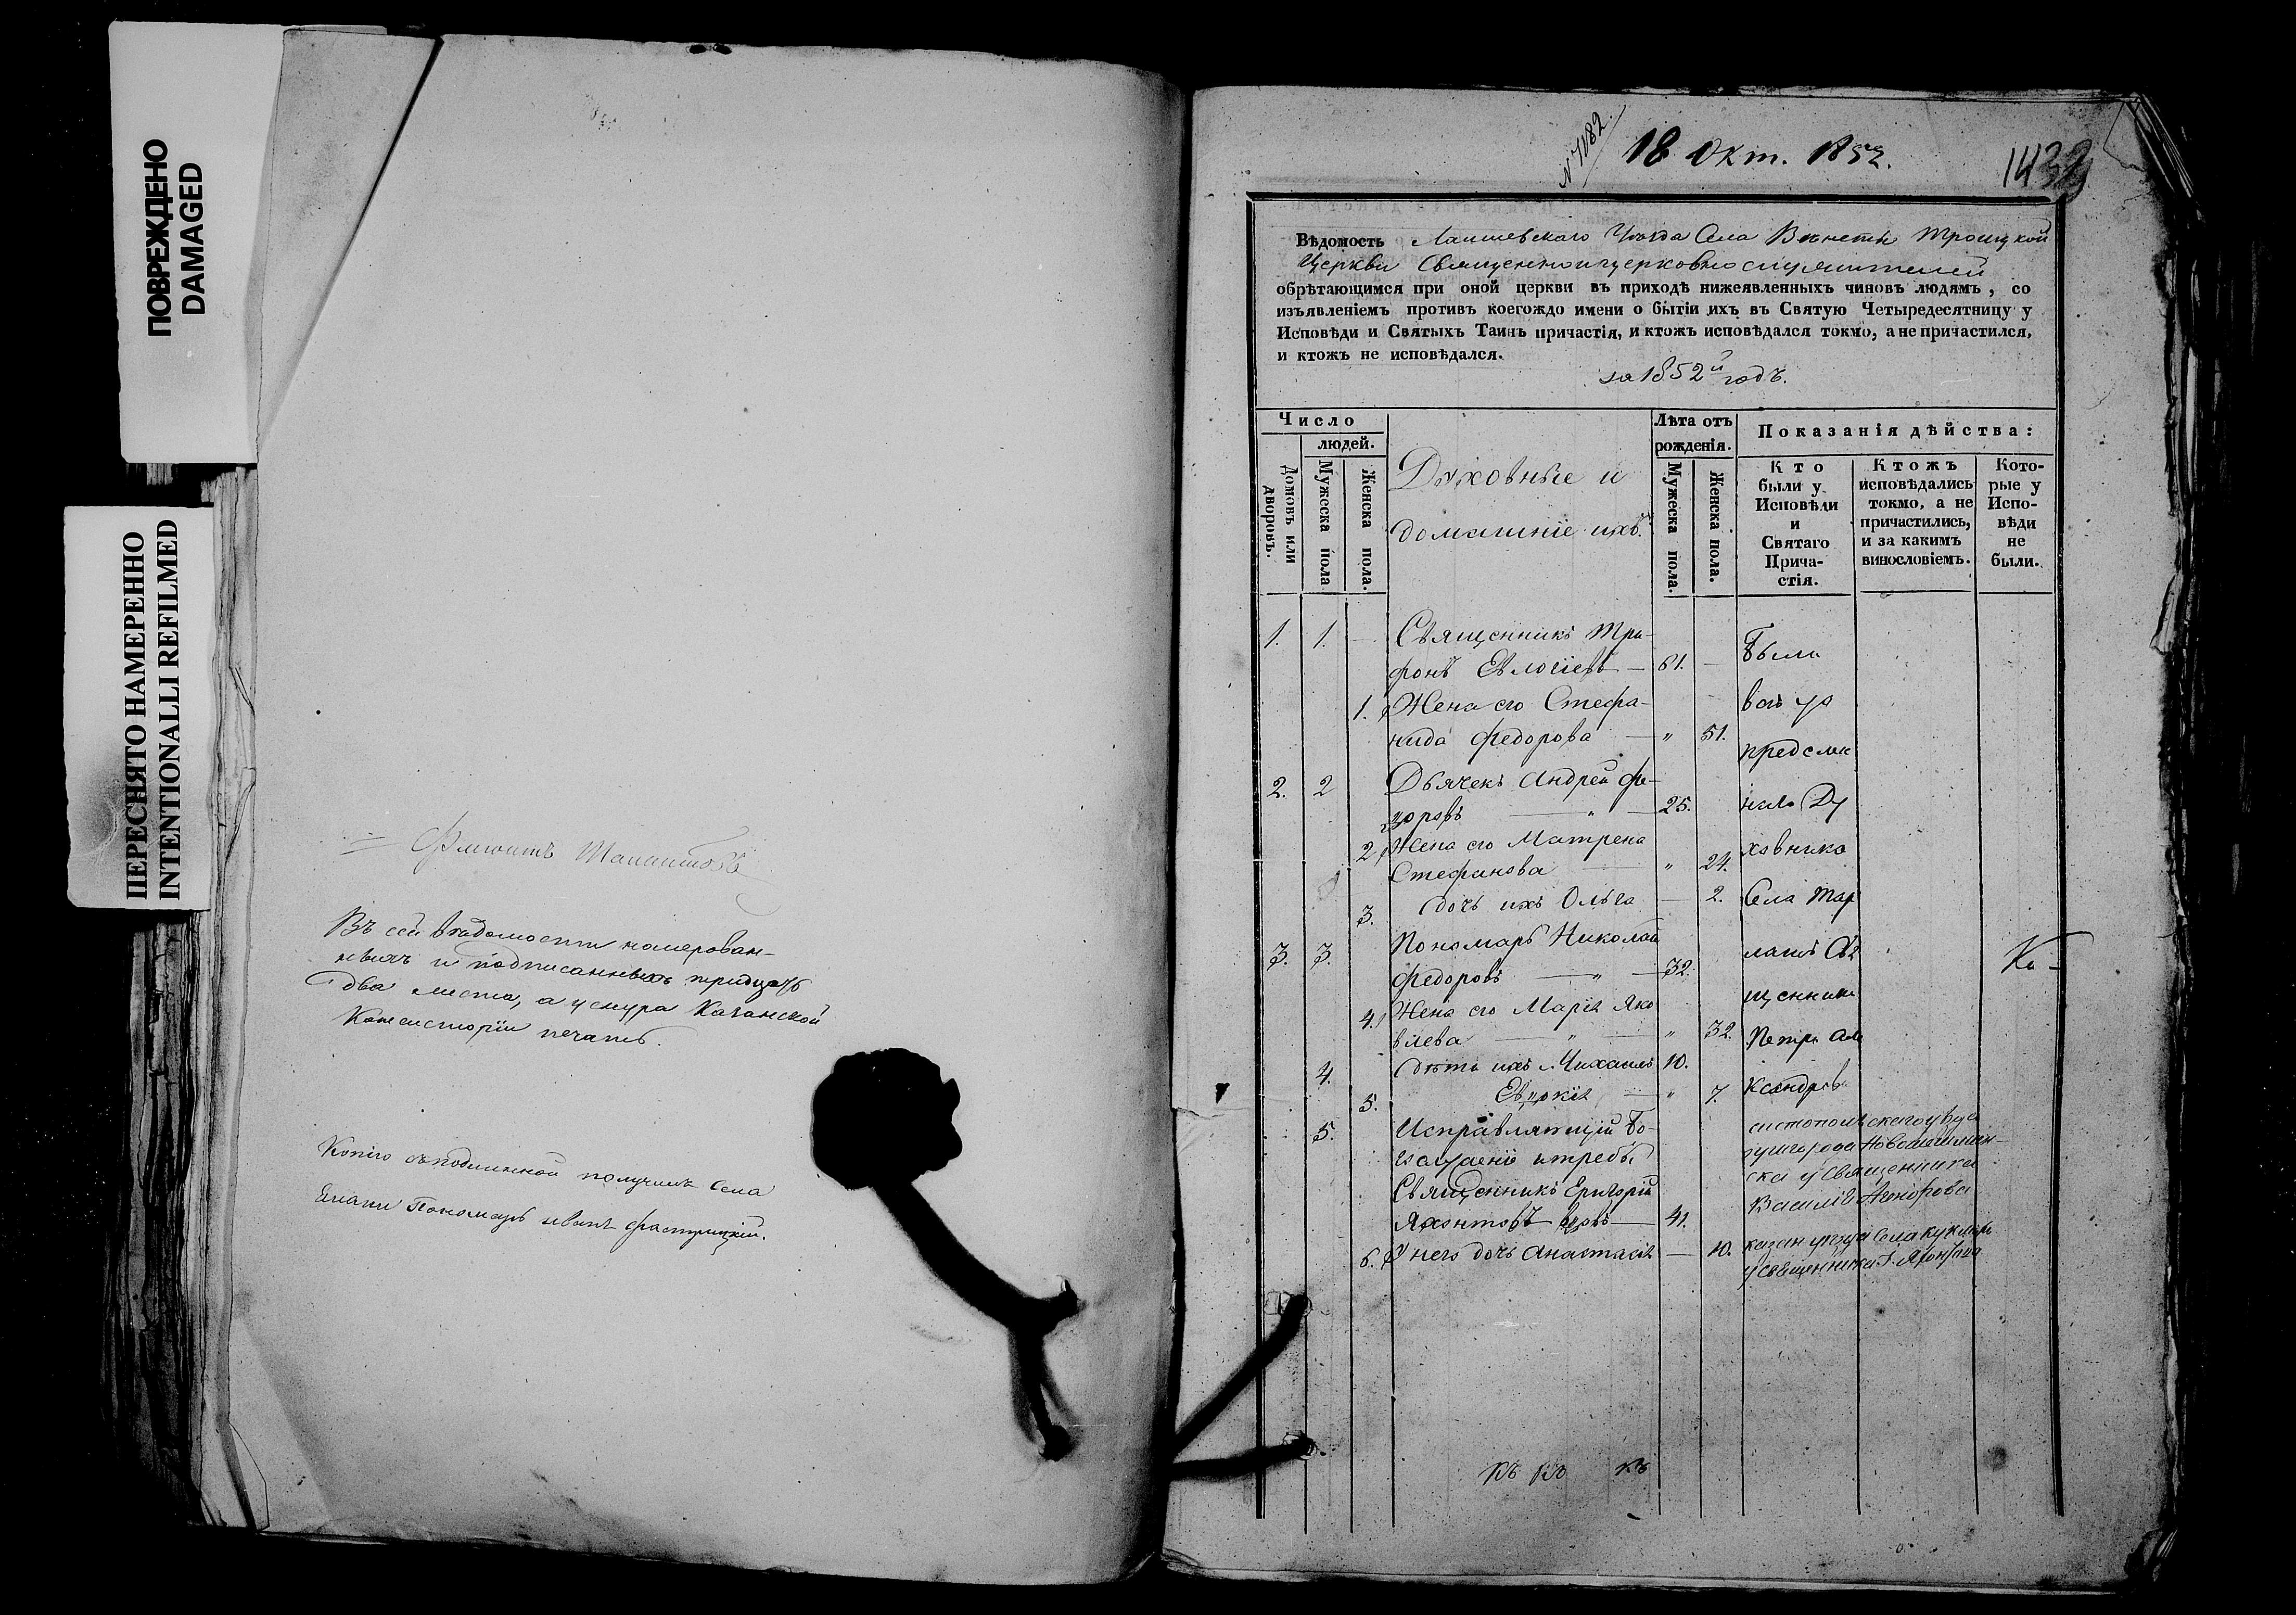 ПОВРЕЖДЕНО
DAMAGED
ПЕРЕСНЯТО НАМЕРЕННО
INTENTIONALLI REFILMED
Въ сей вѣдомости номерован-
ныхъ и подписанныхъ тридцать
два листа, а у снура Казанской
Консисторіи печать.
Копію съ подлинной получилъ Села
Пономарь
№ 7182.
18 Окт. 1852.
1432
Вѣдомость Лаишевскаго Уѣзда Села Троицкой
Церкви Священноицерковнослужителей
обрѣтающимся при оной церкви въ приходѣ нижеявленныхъ чиновъ людямъ, со
изъявленіемъ противъ коегождо имени о бытіи ихъ въ Святую Четыредесятницу у
Исповѣди и Святыхъ Таинъ причастія, и ктожъ исповѣдался токмо, а не причастился,
и ктожъ не исповѣдался.
за 1852й годъ.
Число
людей.
Домовъ или дворовъ.
Мужеска пола
Женска пола.
Духовные и
домашніе ихъ.
Лѣта отъ
рожденія.
Мужеска пола.
Женска пола.
Показанія дѣйства:
Кто
были у
Исповѣди
и
Святаго
Прича-
стія.
Ктожъ
исповѣдались
токмо, а не
причастились,
и за какимъ
винословіемъ.
Кото-
рые у
Испо-
вѣди
не
были.
1. 1. — Священникъ Три-
фонъ Евлогіевъ — 61. — Были
1. Жена его Стефа-
нида Федорова — „ 51.
2. 2 Дьячекъ Андрей Фе-
доровъ — „ — 25. Ду
2. Жена его Матрена ховника
Стефанова — „ 24.
3. дочь ихъ Ольга — 2. Села
3. 3. Пономарь Николай
Федоровъ — „ — 32.
4. Жена его Марія Яко щенника
влева — „ — „ 32. Петра Але
4. дѣти ихъ Михаилъ 10.
5. — „ 7. ксандрова
5. Исправляющій Бо-
гослуженіе и требы
ска у Священника
Священникъ Григорій
Василія
Яхонтовъ вдовъ — 41.
6. У него дочь Анастасія — 10. Казан уѣзда Села
у священника Г. Яхонтова
Къ Къ Къ